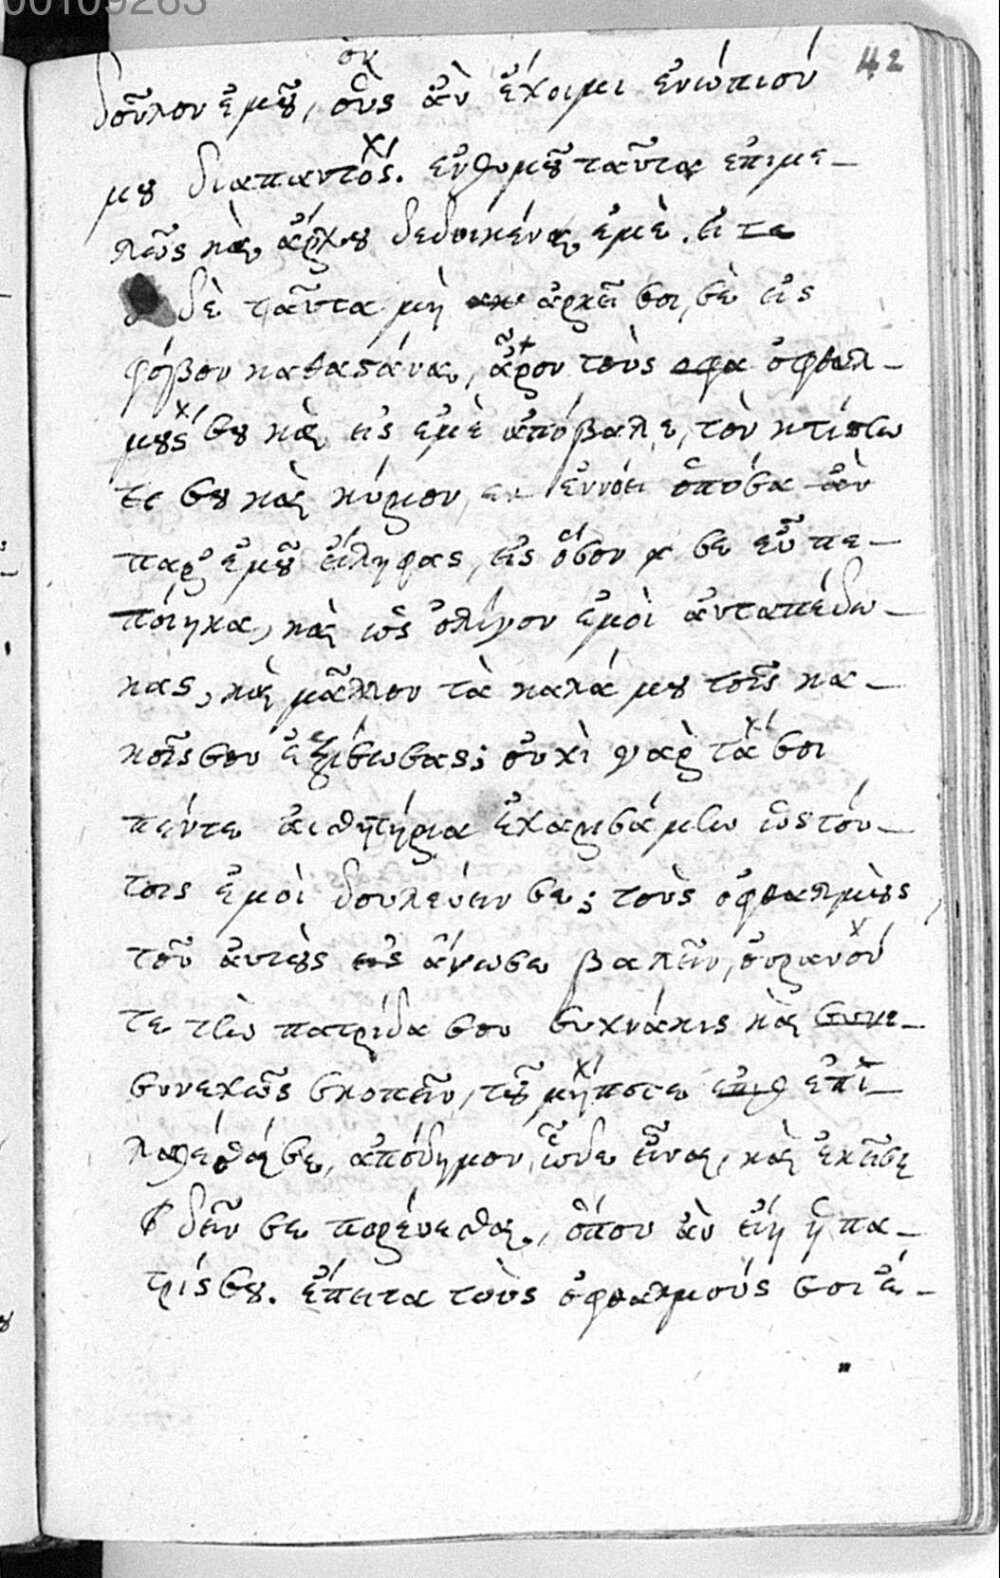 00109263
42
οκ
δοῦλον ἐμοῦ, οὓς ἂν ἔχοιμι ἐνώπιόν
μου διαπαντός. ἐνθυμοῦ ταῦτα ἐπιμε-
λῶς καὶ ἄρχου δεδοικέναι ἐμὲ. εἰ
δὲ ταῦτα μὴ ἀρκεῖ σοι, σὲ εἰς
φόβον καταστάναι, ἆρον τοὺς οφα ὀφθαλ-
μούς σου καὶ εἰς ἐμὲ ἀπόβαλε, τὸν κτίστην
τε σου καὶ κύριον, ἐννόει ὁπόσα ἂν
παρ' ἐμοῦ εἴληφας, εἰς ὅσον σε εὖ πε-
ποίηκα, καὶ ὡς ὀλίγον ἐμοὶ ἀνταπέδω-
κας, καὶ μᾶλλον τὰ καλά μου τοῖς κα-
κοῖς σου ἐξίσωσας; οὐχὶ γὰρ τά σοι
πέντε αἰσθητήρια ἐχαρισάμην ὡς τού-
τοις ἐμοὶ δουλεύειν σε; τοὺς ὀφθαλμοὺς
τοῦ αὐτοὺς εἰς ἄνωσε βαλεῖν, οὐρανόν
τε τὴν πατρίδα σου συχνάκις καὶ συνε-
συνεχῶς σκοπεῖν, τοῦ μήποτε επιλ ἐπι-
λαθέσθαι σε, ἀπόδημον ὧδε εἶναι, καὶ ἐκεῖσε
δεῖν σε πορεύεσθαι, ὅπου ἂν εἴη ἡ πα-
τρίς σου. ἔπειτα τοὺς ὀφθαλμούς σοι ἐ-